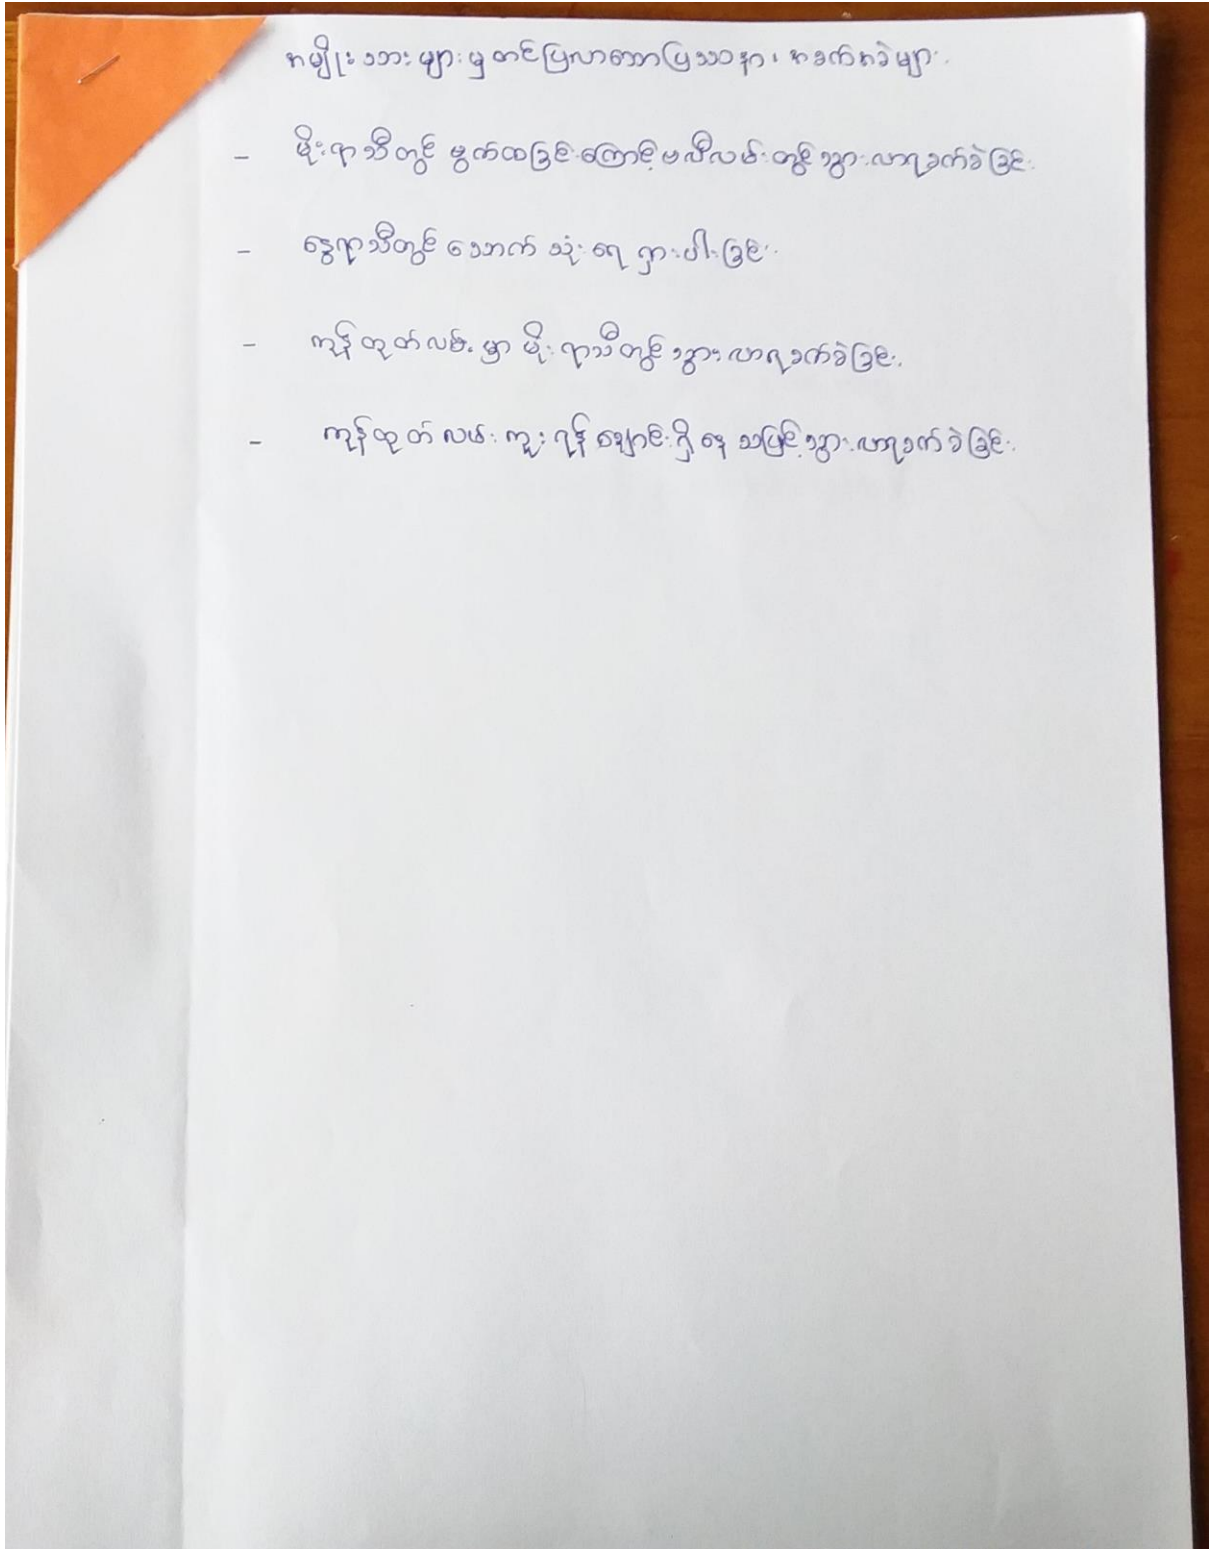 အမျိုးသားများမှတင်ပြလာသောပြဿနာ၊ အခက်အခဲများ.
- မိုးရာသီတွင် ဗွက်ထခြင်းကြောင့် မလီလမ်းတွင် သွားလာရခက်ခဲခြင်း.
- နွေရာသီတွင် သောက်သုံးရေ ရှားပါးခြင်း.
- ကုန်ထုတ်လမ်းမှာ မိုးရာသီတွင် သွားလာရခက်ခဲခြင်း.
- ကုန်ထုတ်လမ်းကူးရန် ချောင်းရှိနေသဖြင့် သွားလာရခက်ခဲခြင်း.